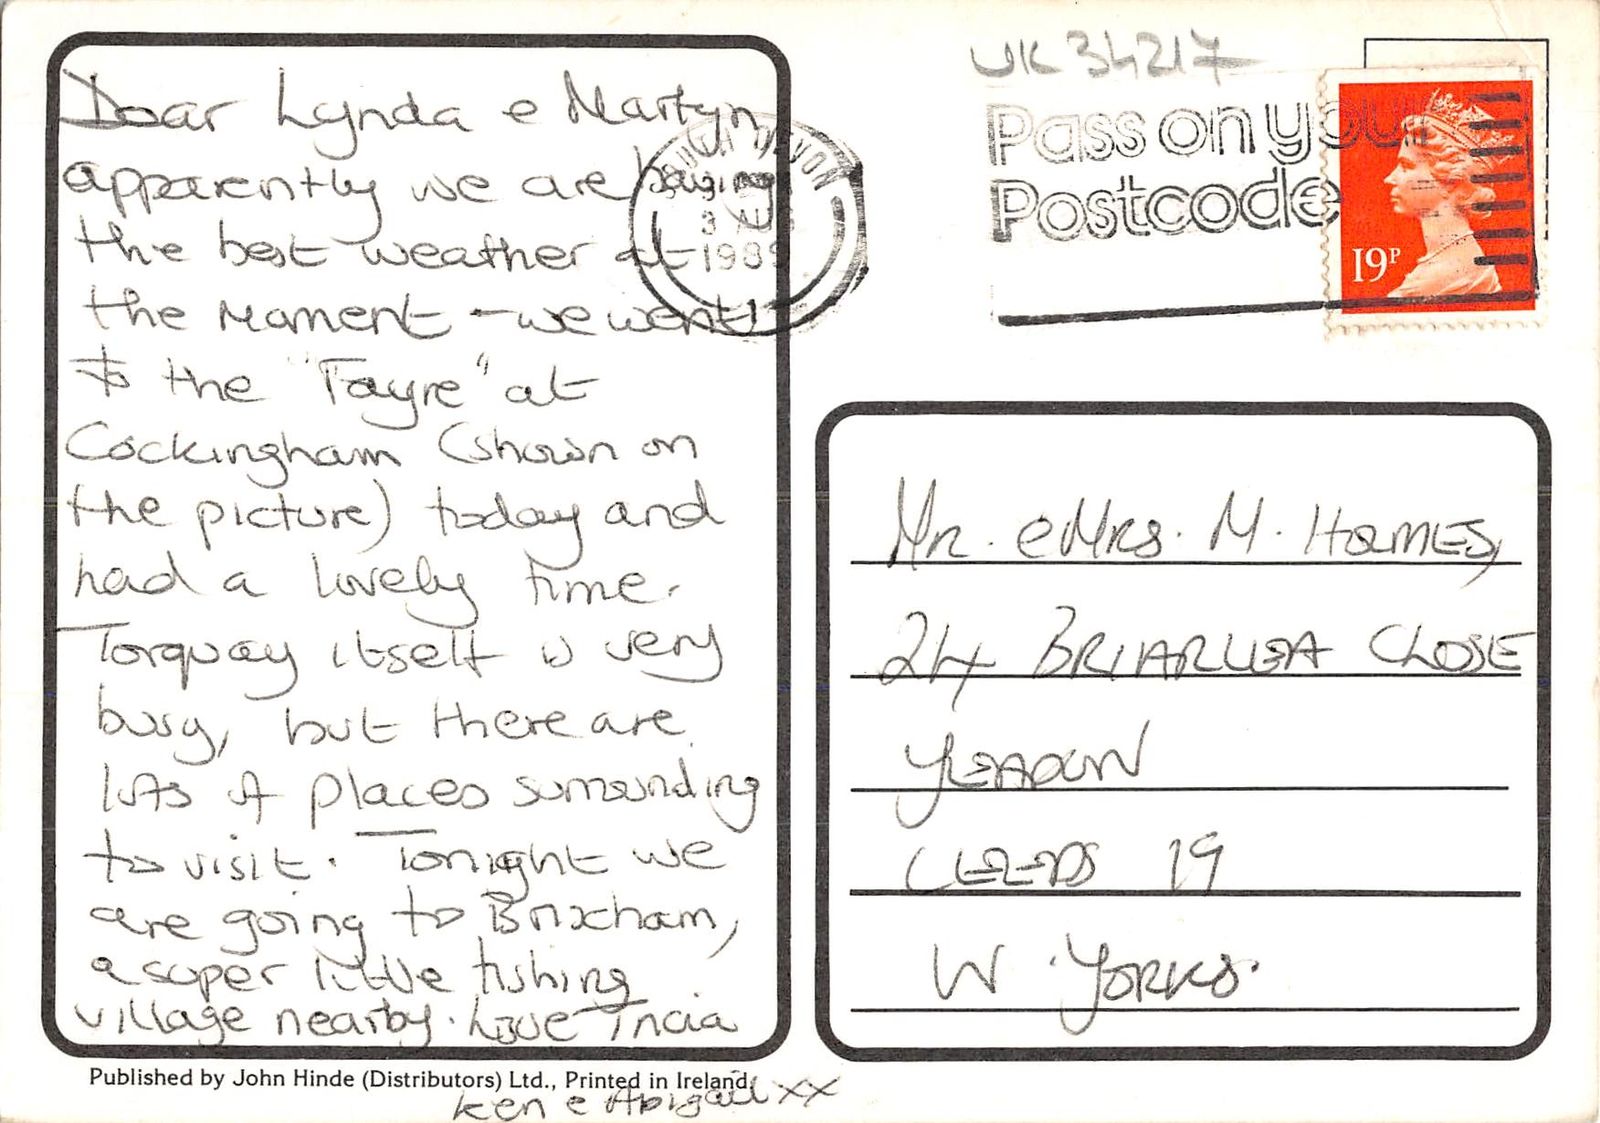 Dear Lynda e Martyn,
apparently we are having
the best weather at
the moment - we went
to the "Fayre" at
Cockingham (shown on
the picture) today and
had a lovely time.
Torquay itself is very
busy, but there are
lots of places surrounding
to visit. Tonight we
are going to Brixham,
a super little fishing
village nearby. Love Tricia
Ken e Abigail xx
Published by John Hinde (Distributors) Ltd., Printed in Ireland.
UK 34217
DEVON
3 AUG
198
Pass on your
Postcode
19P
Mr. e Mrs. M. HOLMES,
24 BRIARLEA CLOSE
YEADON
LEEDS 19
W. YORKS.